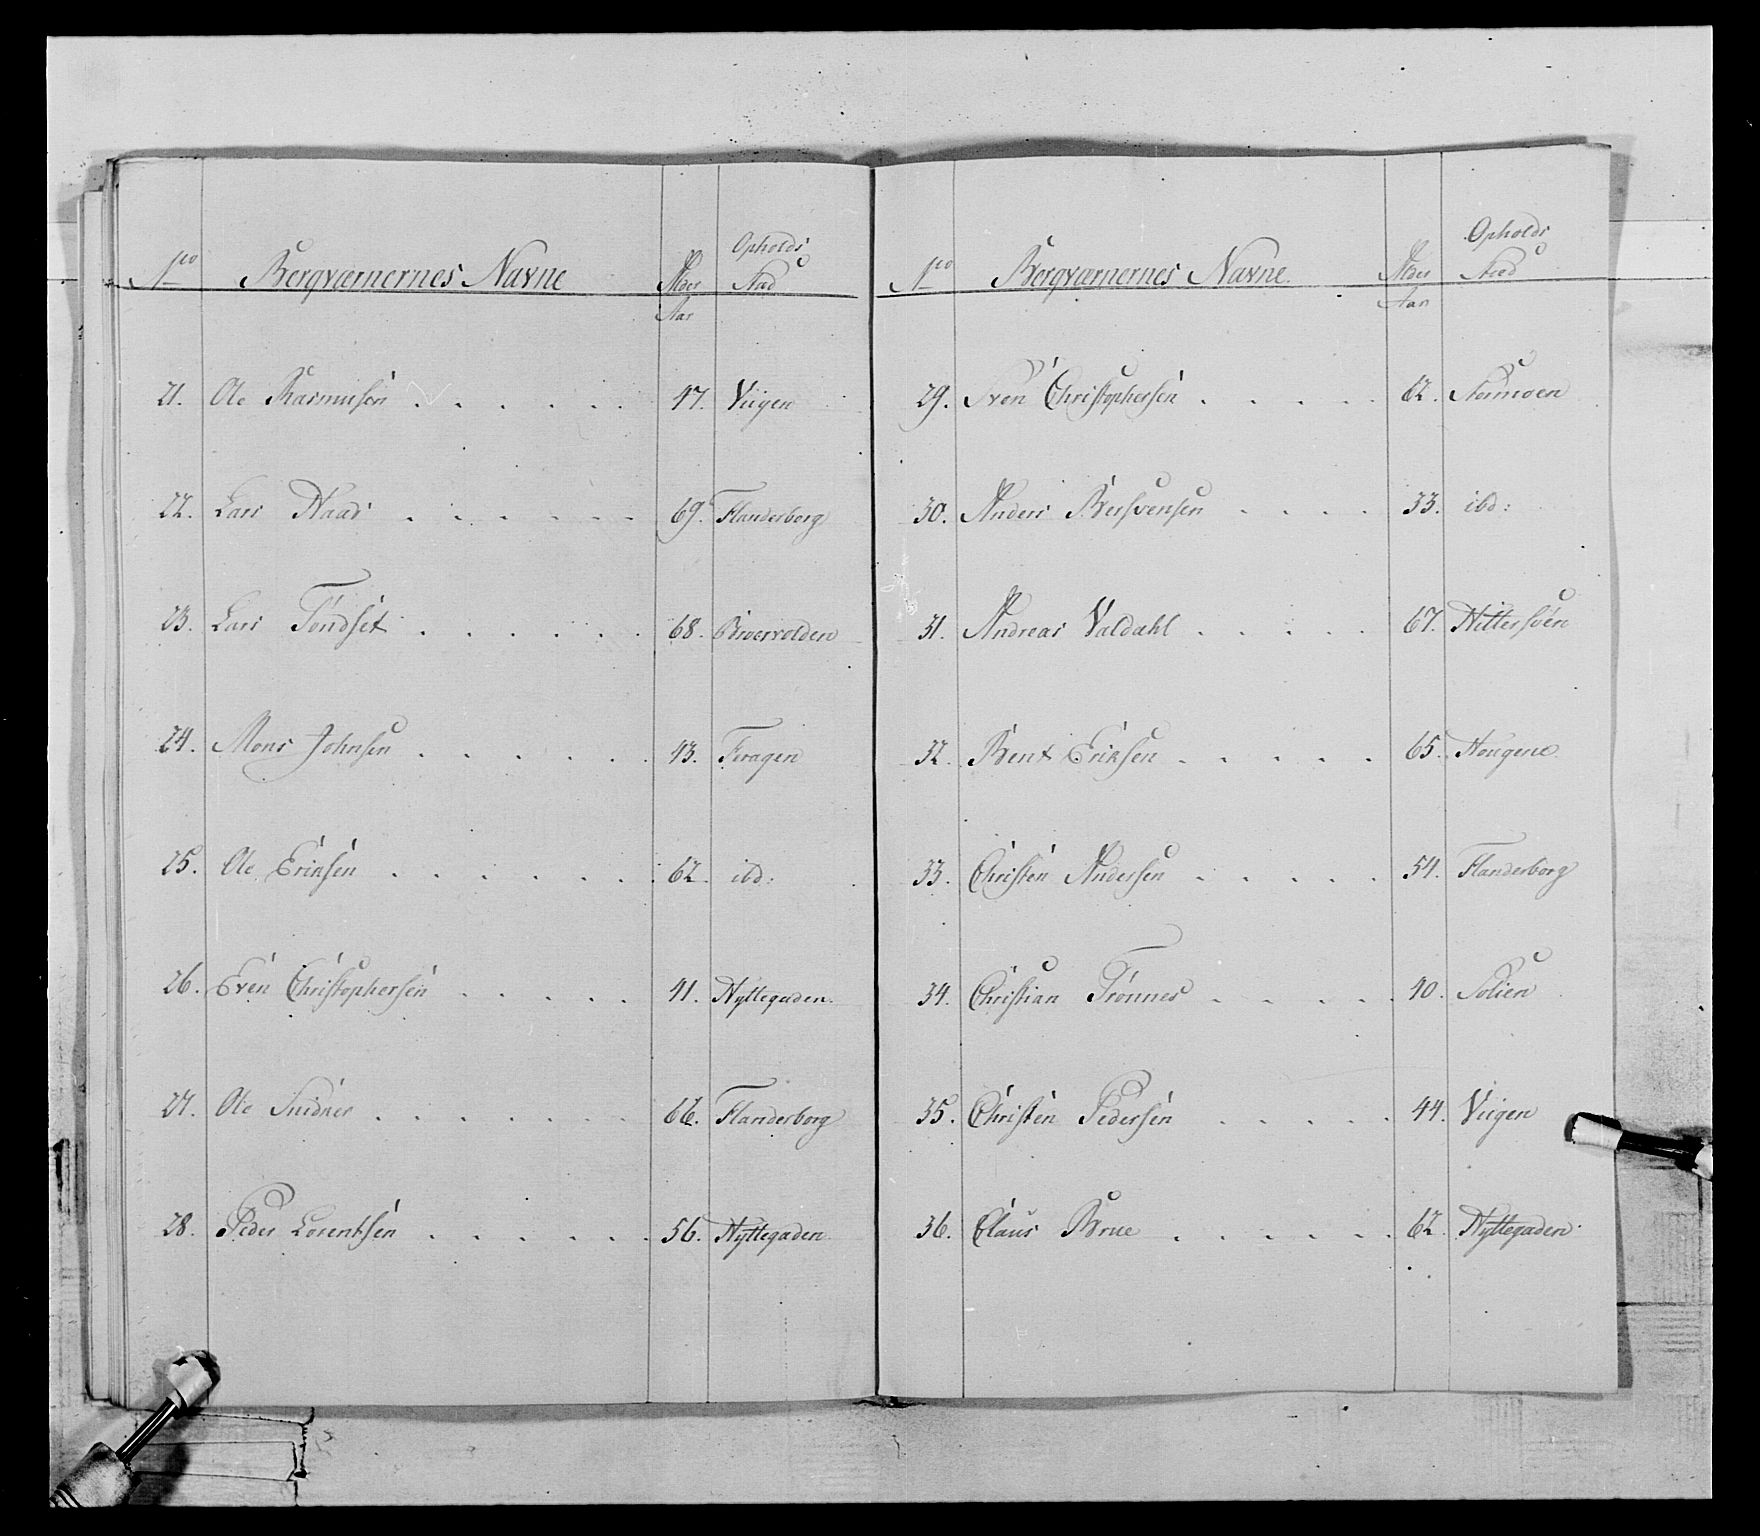 No Bergværnernes Navne Alder Opholds Sted
Aar
21. Ole Rasmusen . . . . . . 47. Viigen
22. Lars Haas . . . . . . 69. Flanderborg
23. Lars Töndset . . . . . . 68.
24. Mons Johnsen . . . . . . 43. Feragen
25. Ole Eriksen . . . . . . 62. ibd:
26. Even Christophersen . . . . . 41. Hyttegaden.
27. Ole . . . . . . . 66. Flanderborg
28. Peder Lorentsen . . . . . . 56. Hyttegaden
No Bergværnernes Navne. Alder Opholds Sted
Aar
29. Sven Christophersen . . . . . 62. Stormoen
30. Anders Bersvensen . . . . 33. ibd:
31. Andreas Valdahl . . . . . 67. Hittersöen
32. Bent Eriksen . . . . . 65. Hougene
33. Christen Andersen . . . . . 54. Flanderborg
34. Christian Trönnes . . . . . 40. Solien
35. Christen Pedersen . . . . . 44. Viigen
36. Claus Brue . . . . . . 62. Hyttegaden.